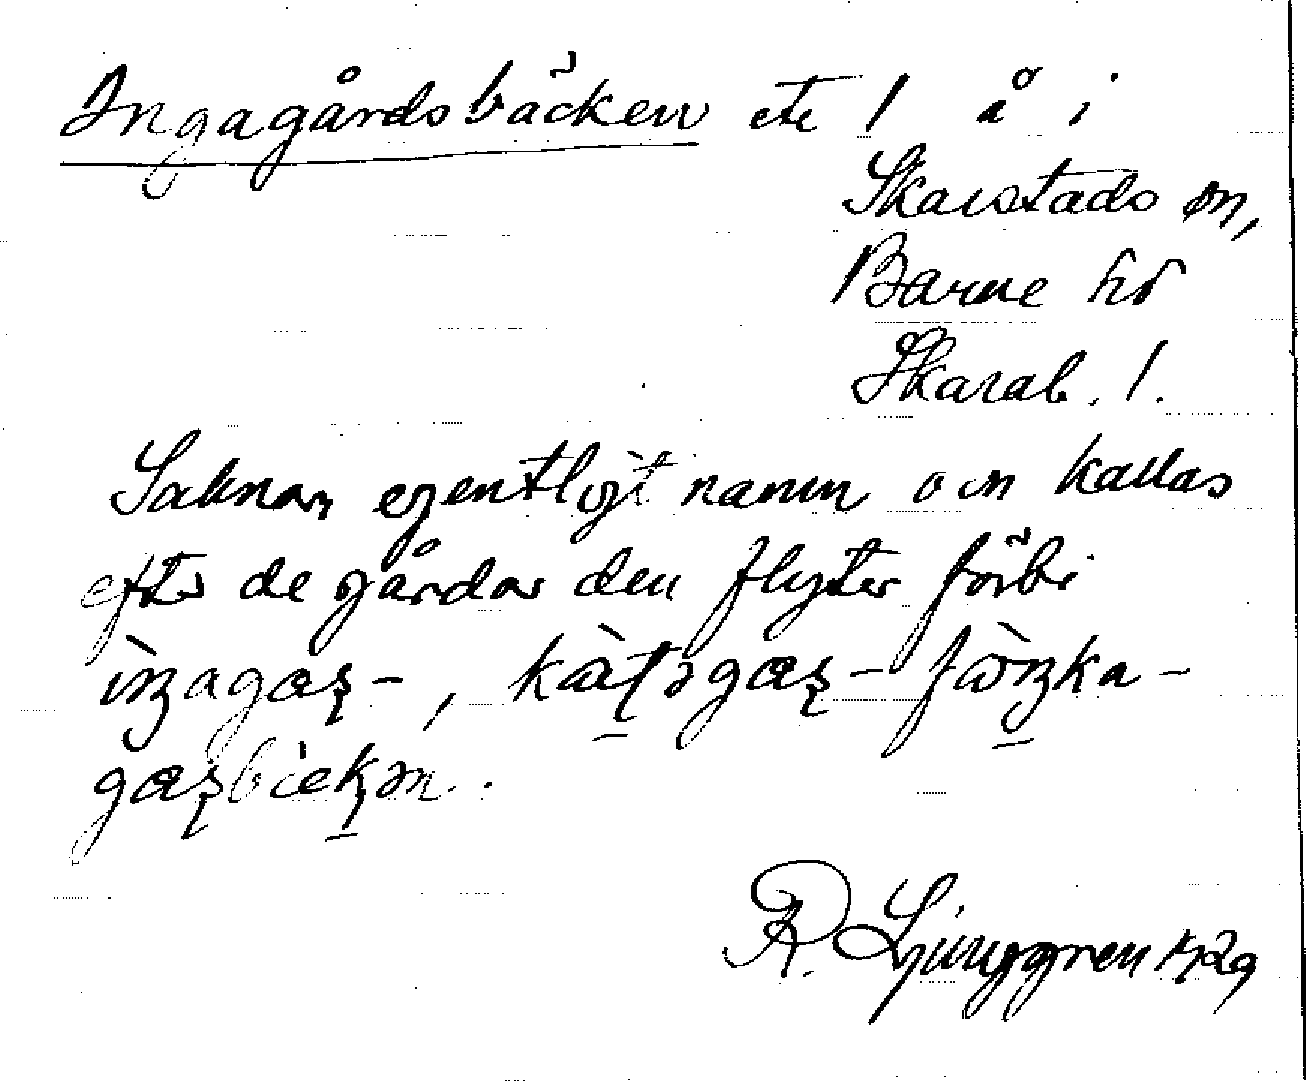 Ingagårdsbäcken etc / å i
Skarstads sn,
Barne hd
Skarab. l.
Saknar egentligt namn och kallas
efter de gårdar den flyter förbi
ìŋagaʂ-, 
gæʂbækən.
R. Ljunggren 1929